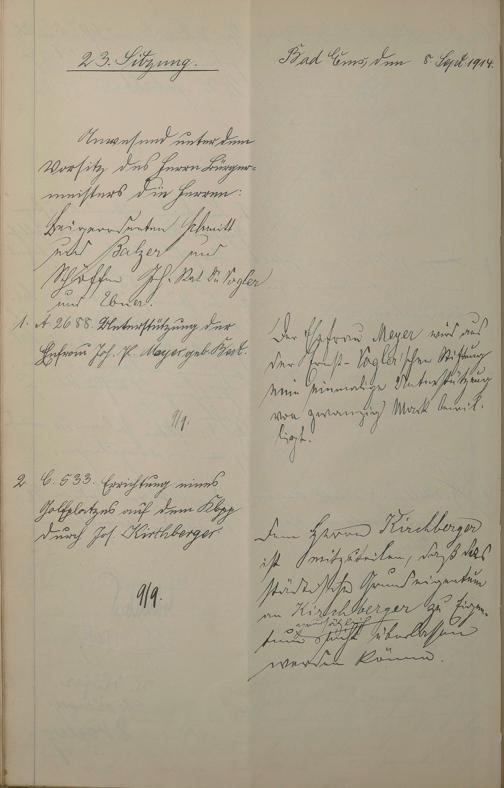 23. Sitzung.
Bad Ems, den 8. Sept. 1914.
Anwesend unter dem
Vorsitz des Herrn Bürger-
meisters die Herren:
Beigeordneten Schmitt
und Balzer und
Schöffen Vogler
und Ebner.
1. A 2688. Unterstützung der
Ehefrau Joh. P. Meyer geb.
9/9.
Der Ehefrau Meyer wird aus
der Ernst-Vogler'schen Stiftung
eine einmalige Unterstützung
von zwanzig Mark bewil-
ligt.
2. C. 533. Errichtung eines
Golfplatzes auf dem Klopp
durch Jos. Kirchberger
9/9.
Dem Herrn Kirchberger
ist mitzuteilen, daß das
städtische Grundeigentum
an Kirchberger zu Eigen-
tum nicht überlassen
werden könne.